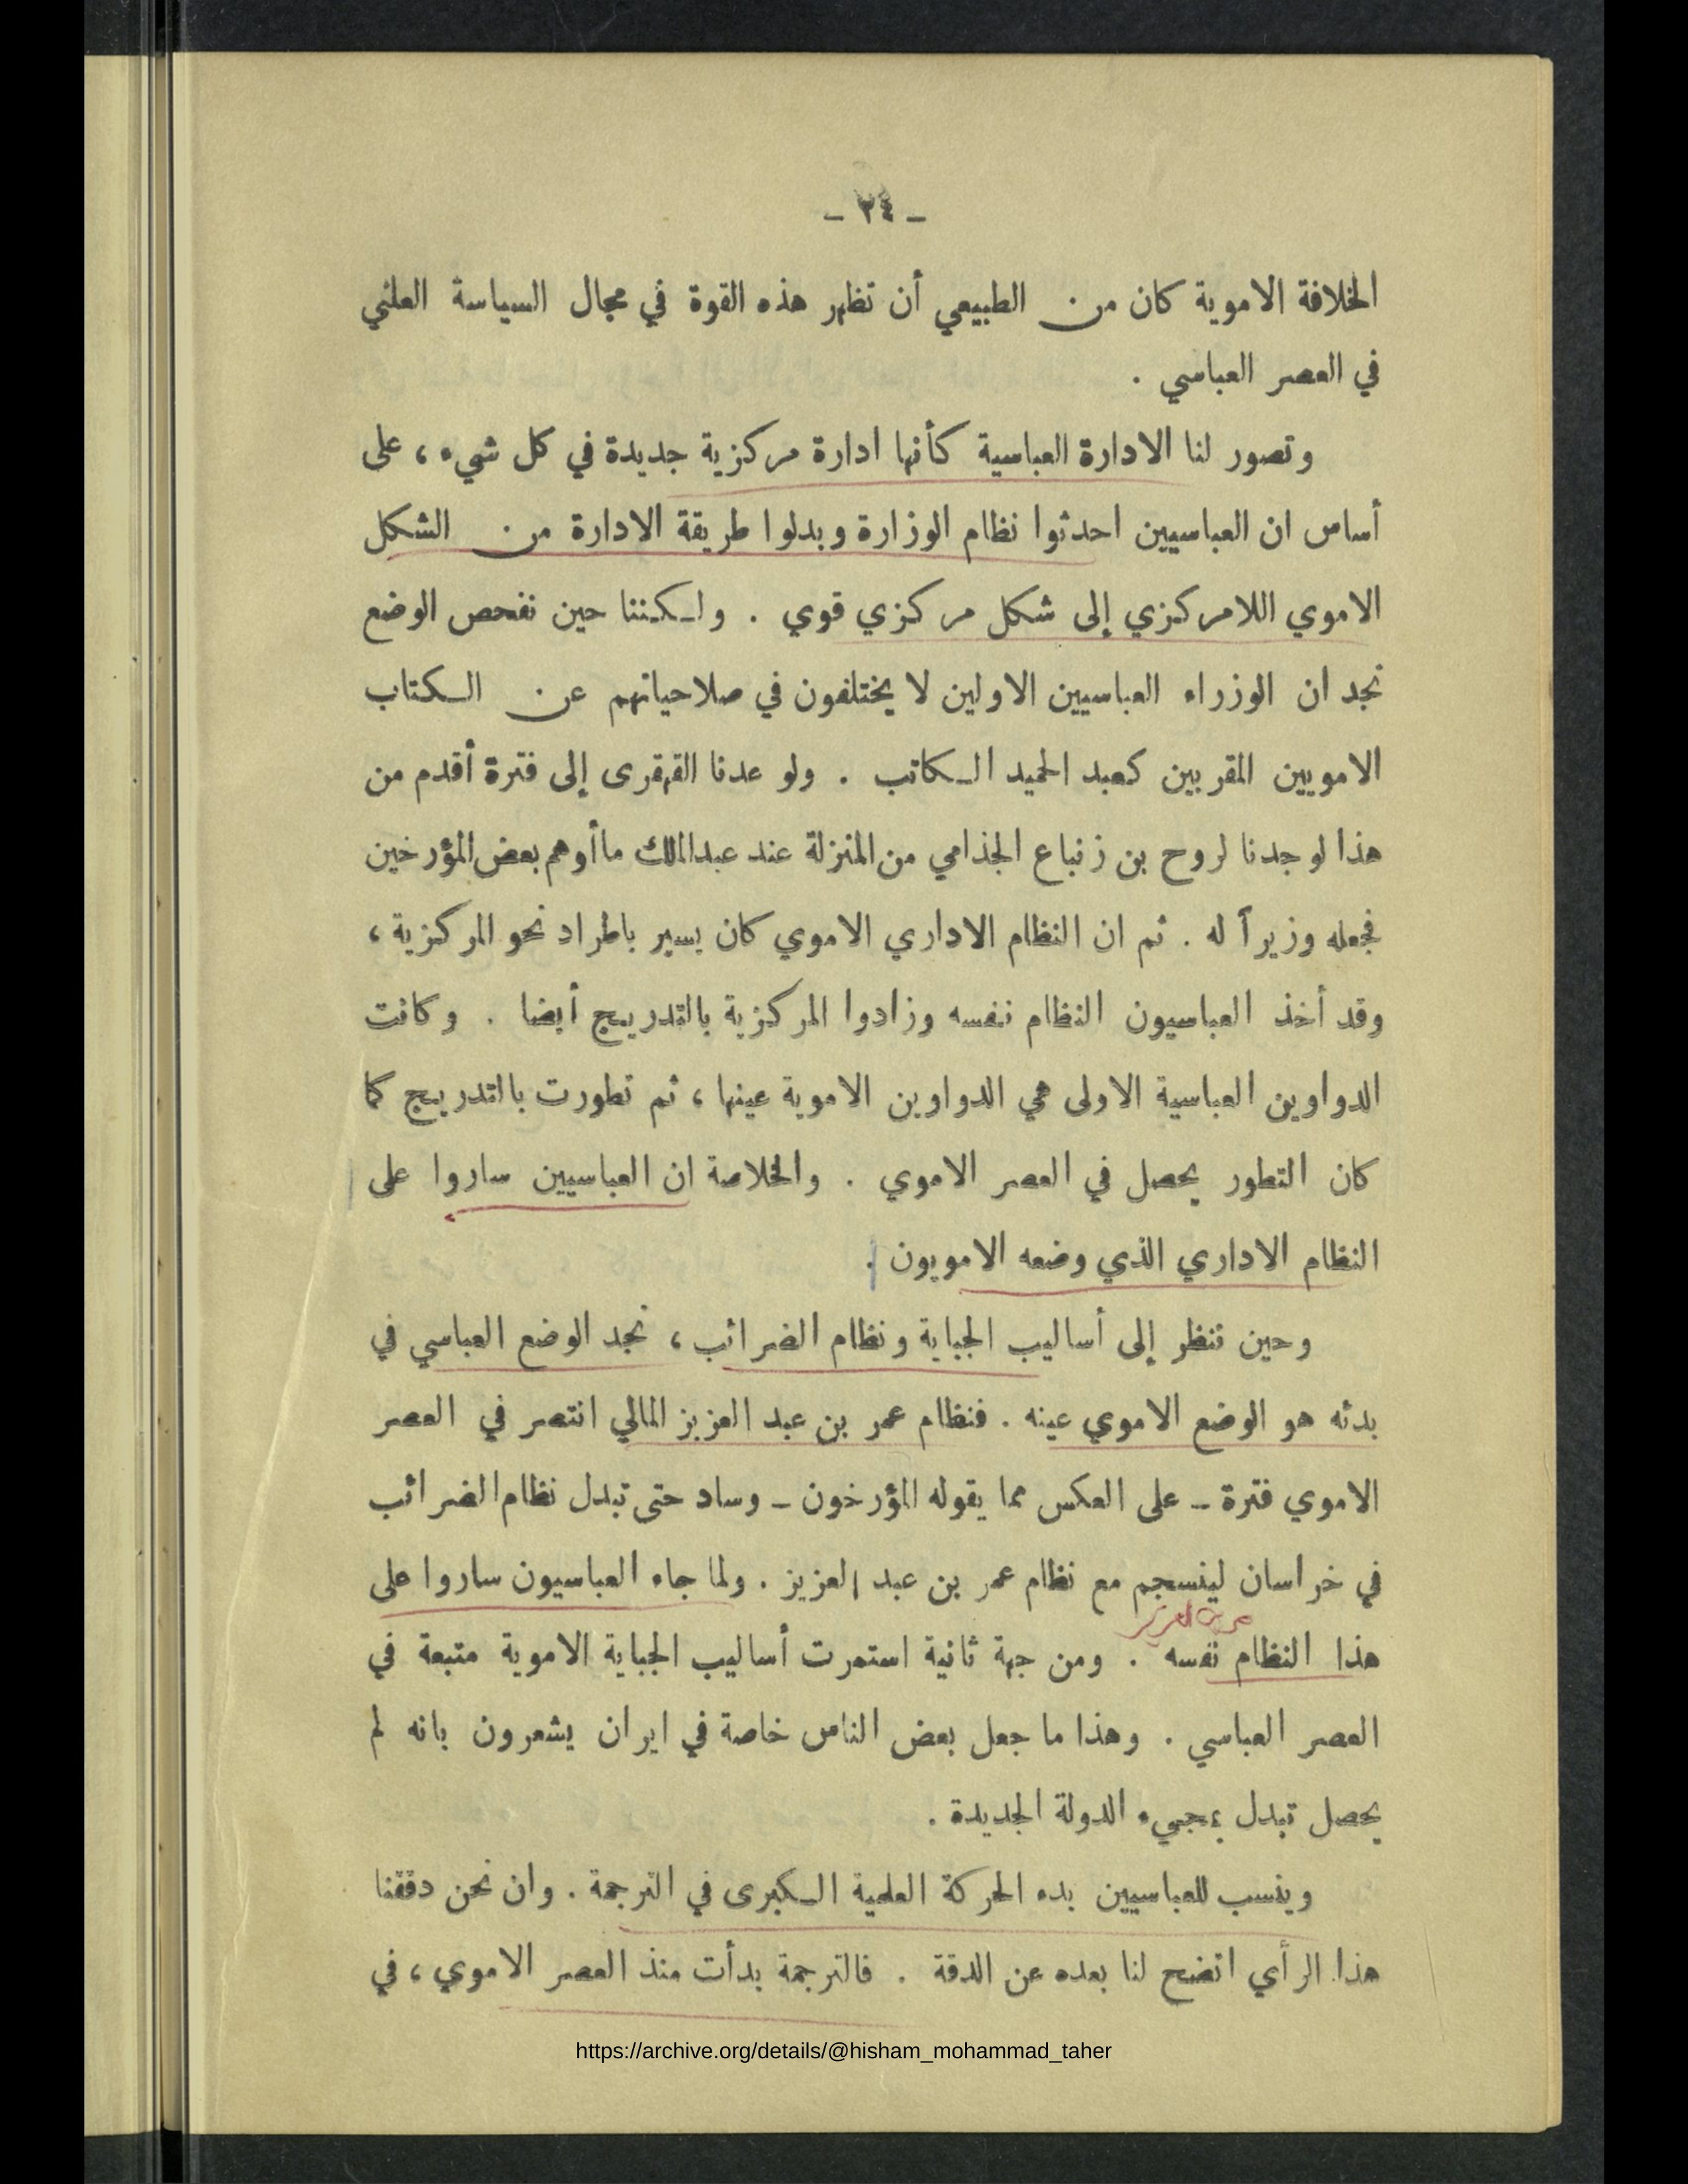 - ٢٤ -
الخلافة الاموية كان من الطبيعي أن تظهر هذه القوة في مجال السياسة العلني
في العصر العباسي .
وتصور لنا الادارة العباسية كأنها ادارة مركزية جديدة في كل شيء ، على
أساس ان العباسيين احدثوا نظام الوزارة وبدلوا طريقة الادارة من الشكل
الاموي اللامركزي إلى شكل مركزي قوي . ولكننا حين نفحص الوضع
نجد ان الوزراء العباسيين الاولين لا يختلفون في صلاحياتهم عن الكتاب
الامويين المقربين كعبد الحميد الكاتب . ولو عدنا القهقرى إلى فترة أقدم من
هذا لوجدنا لروح بن زنباع الجذامي من المنزلة عند عبدالملك ماأوهم بعض المؤرخين
فجعله وزيرآ له . ثم ان النظام الاداري الاموي كان يسير باطراد نحو المركزية ،
وقد أخذ العباسيون النظام نفسه وزادوا المركزية بالتدريج أيضا . وكانت
الدواوين العباسية الاولى هي الدواوين الاموية عينها ، ثم تطورت بالتدريج كما
كان التطور يحصل في العصر الاموي . والخلاصة ان العباسيين ساروا على
النظام الاداري الذي وضعه الامويون .
وحين ننظر إلى أساليب الجباية ونظام الضرائب ، نجد الوضع العباسي في
بدئه هو الوضع الاموي عينه . فنظام عمر بن عبد العزيز المالي انتصر في العصر
الاموي فترة - على العكس مما يقوله المؤرخون - وساد حتى تبدل نظام الضرائب
في خراسان لينسجم مع نظام عمر بن عبد العزيز . ولما جاء العباسيون ساروا على
هذا النظام نفسه . ومن جهة ثانية استمرت أساليب الجباية الاموية متبعة في
العصر العباسي . وهذا ما جعل بعض الناس خاصة في ايران يشعرون بانه لم
يحصل تبدل بمجيء الدولة الجديدة .
وينسب للعباسيين بدء الحركة العلمية الكبرى في الترجمة . وان نحن دققنا
هذا الرأي اتضح لنا بعده عن الدقة . فالترجمة بدأت منذ العصر الاموي ، في
https://archive.org/details/@hisham_mohammad_taher